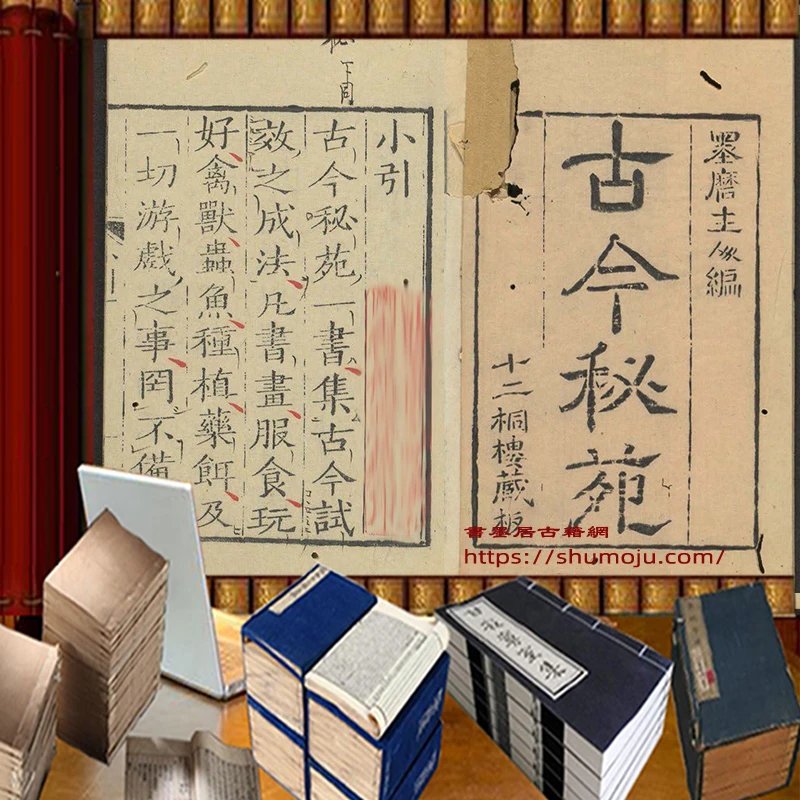 墨磨主人編
古今秘苑
十二桐樓藏板
小引
古今秘苑一書集古今試
效之成法凡書畫服食玩
好禽獸蟲魚種植藥餌及
一切游戲之事罔不備
書墨居古籍網
https://shumoju.com/